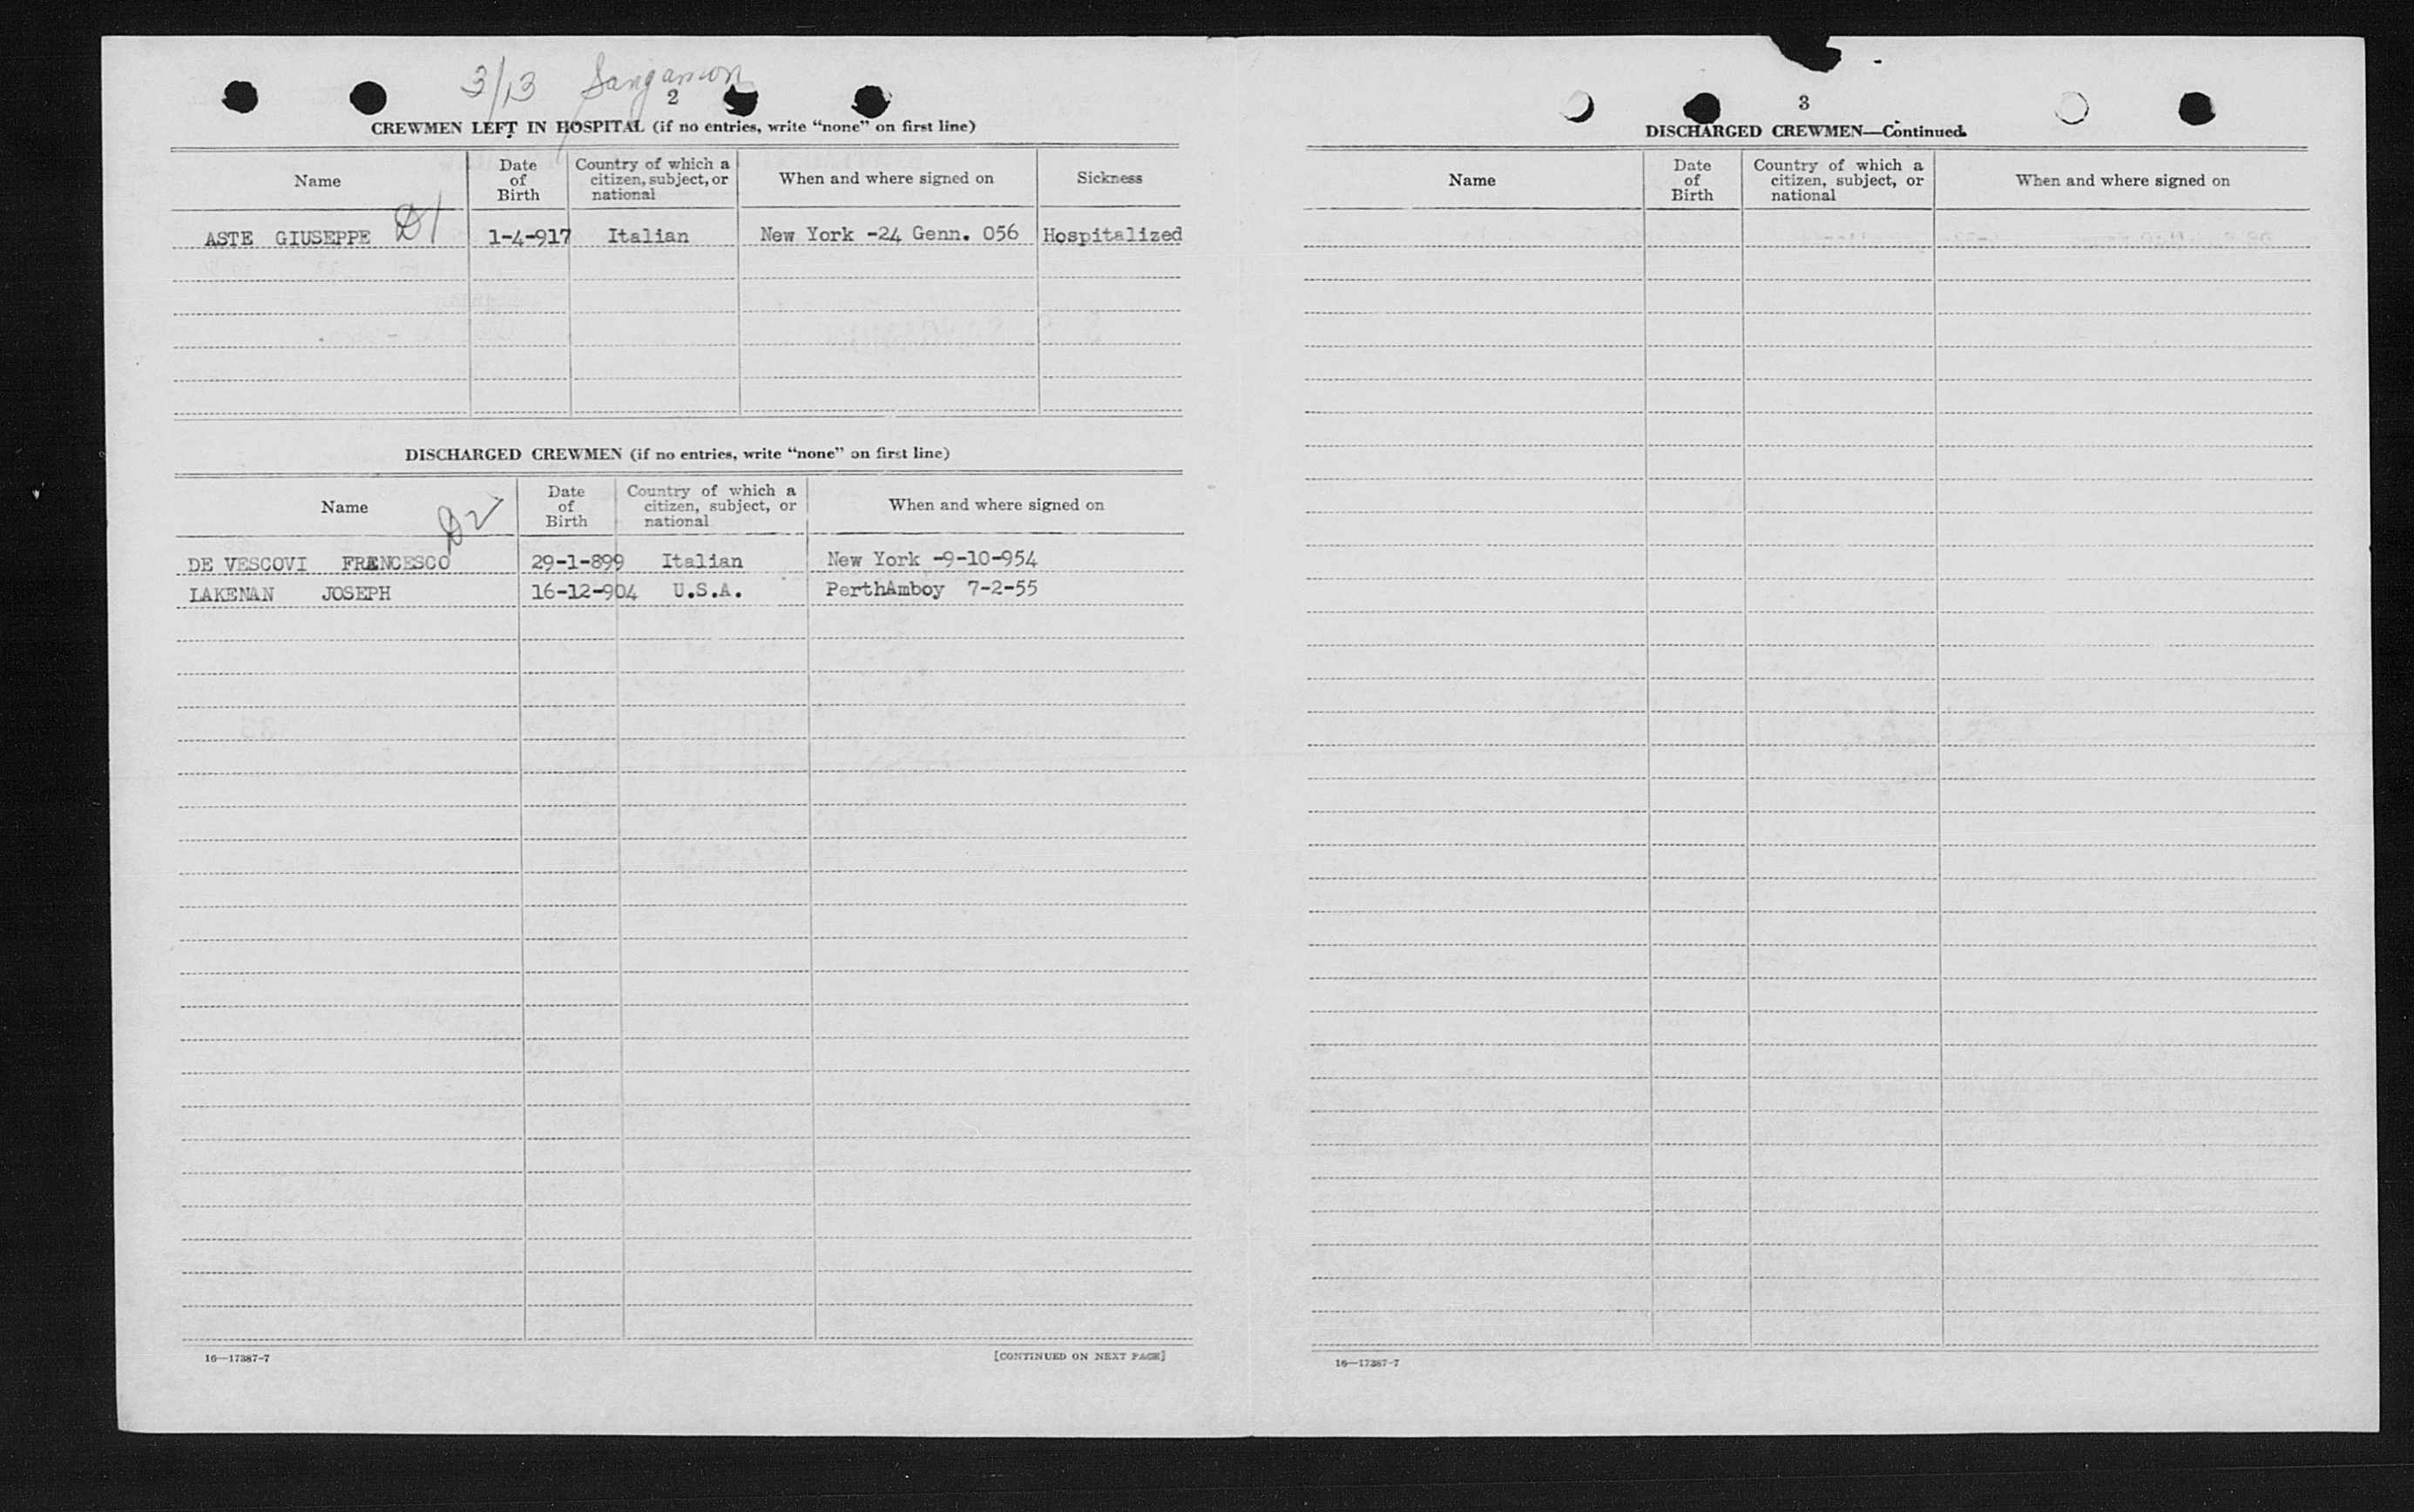 3/13 Sangamon
2
CREWMEN LEFT IN HOSPITAL (if no entries, write “none” on first line)
Name Date of Birth Country of which a citizen, subject, or national When and where signed on Sickness
D1
ASTE GIUSEPPE 1-4-917 Italian New York -24 Genn. 056 Hospitalized
DISCHARGED CREWMEN (if no entries, write “none” on first line)
Name Date of Birth Country of which a citizen, subject, or national When and where signed on
D2
DE VESCOVI FRANCESCO 29-1-899 Italian New York -9-10-954
LAKENAN JOSEPH 16-12-904 U.S.A. PerthAmboy 7-2-55
16—17387-7 [CONTINUED ON NEXT PAGE]
3
DISCHARGED CREWMEN—Continued.
Name Date of Birth Country of which a citizen, subject, or national When and where signed on
16—17387-7